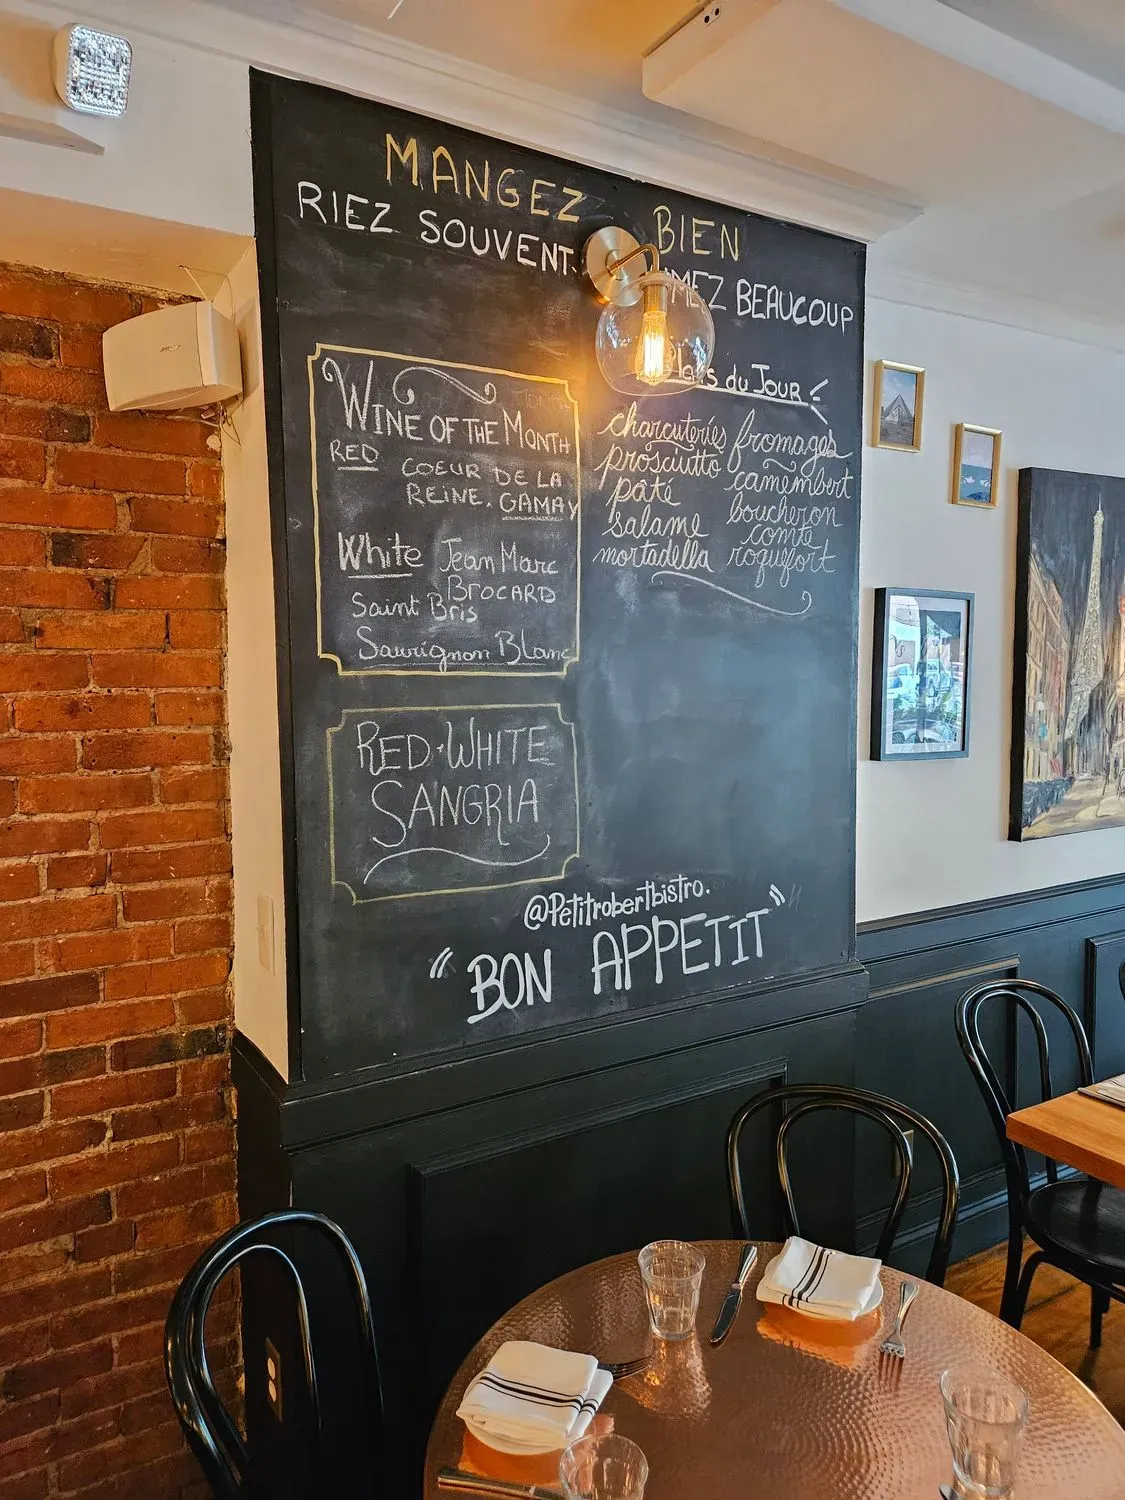 MANGEZ BIEN
RIEZ SOUVENT. BEAUCOUP
WINE OF THE MONTH
RED COEUR DE LA
REINE. GAMAY
White Jean Marc
BROCARD
Saint Bris
Sauvignon Blanc
RED·WHITE
SANGRIA
du JOUR
charcuteries
prosciutto
pâté
salame
mortadella
fromages
camembert
boucheron
comté
roquefort
@Petitrobertbistro.
"BON APPETIT"